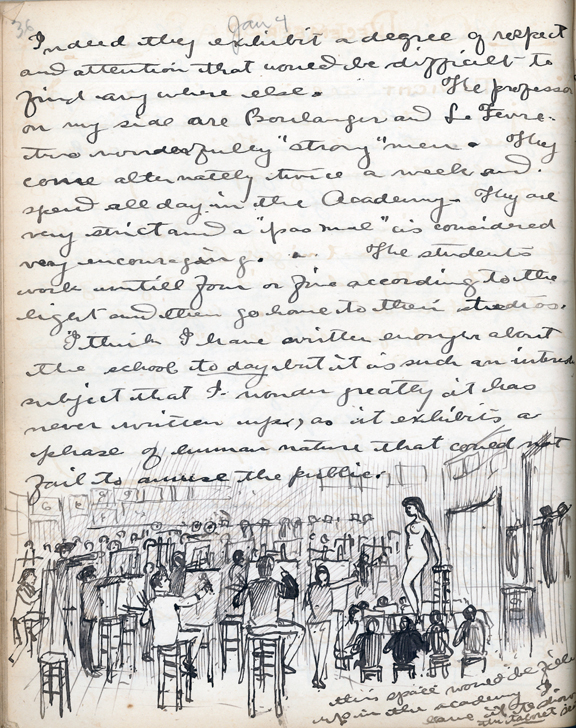 36
Jan 4
Indeed they exhibit a degree of respect
and attention that would be difficult to
find any where else. The professors
on my side are Boulanger and Le Fevre-
two wonderfully "strong" men. They
come alternately twice a week and
spend all day in the Academy. They are
very strict and a "pas mal" is considered
very encouraging. The students
work untill four or five according to the
light and then go home to their studios.
I think I have written enough about
the school to day but it is such an interest
subject that I wonder greatly it has
never written up, as it exhibits a
phase of human nature that could not
fail to amuse the public,
this space would be filled
up in the academy I
leave it to show